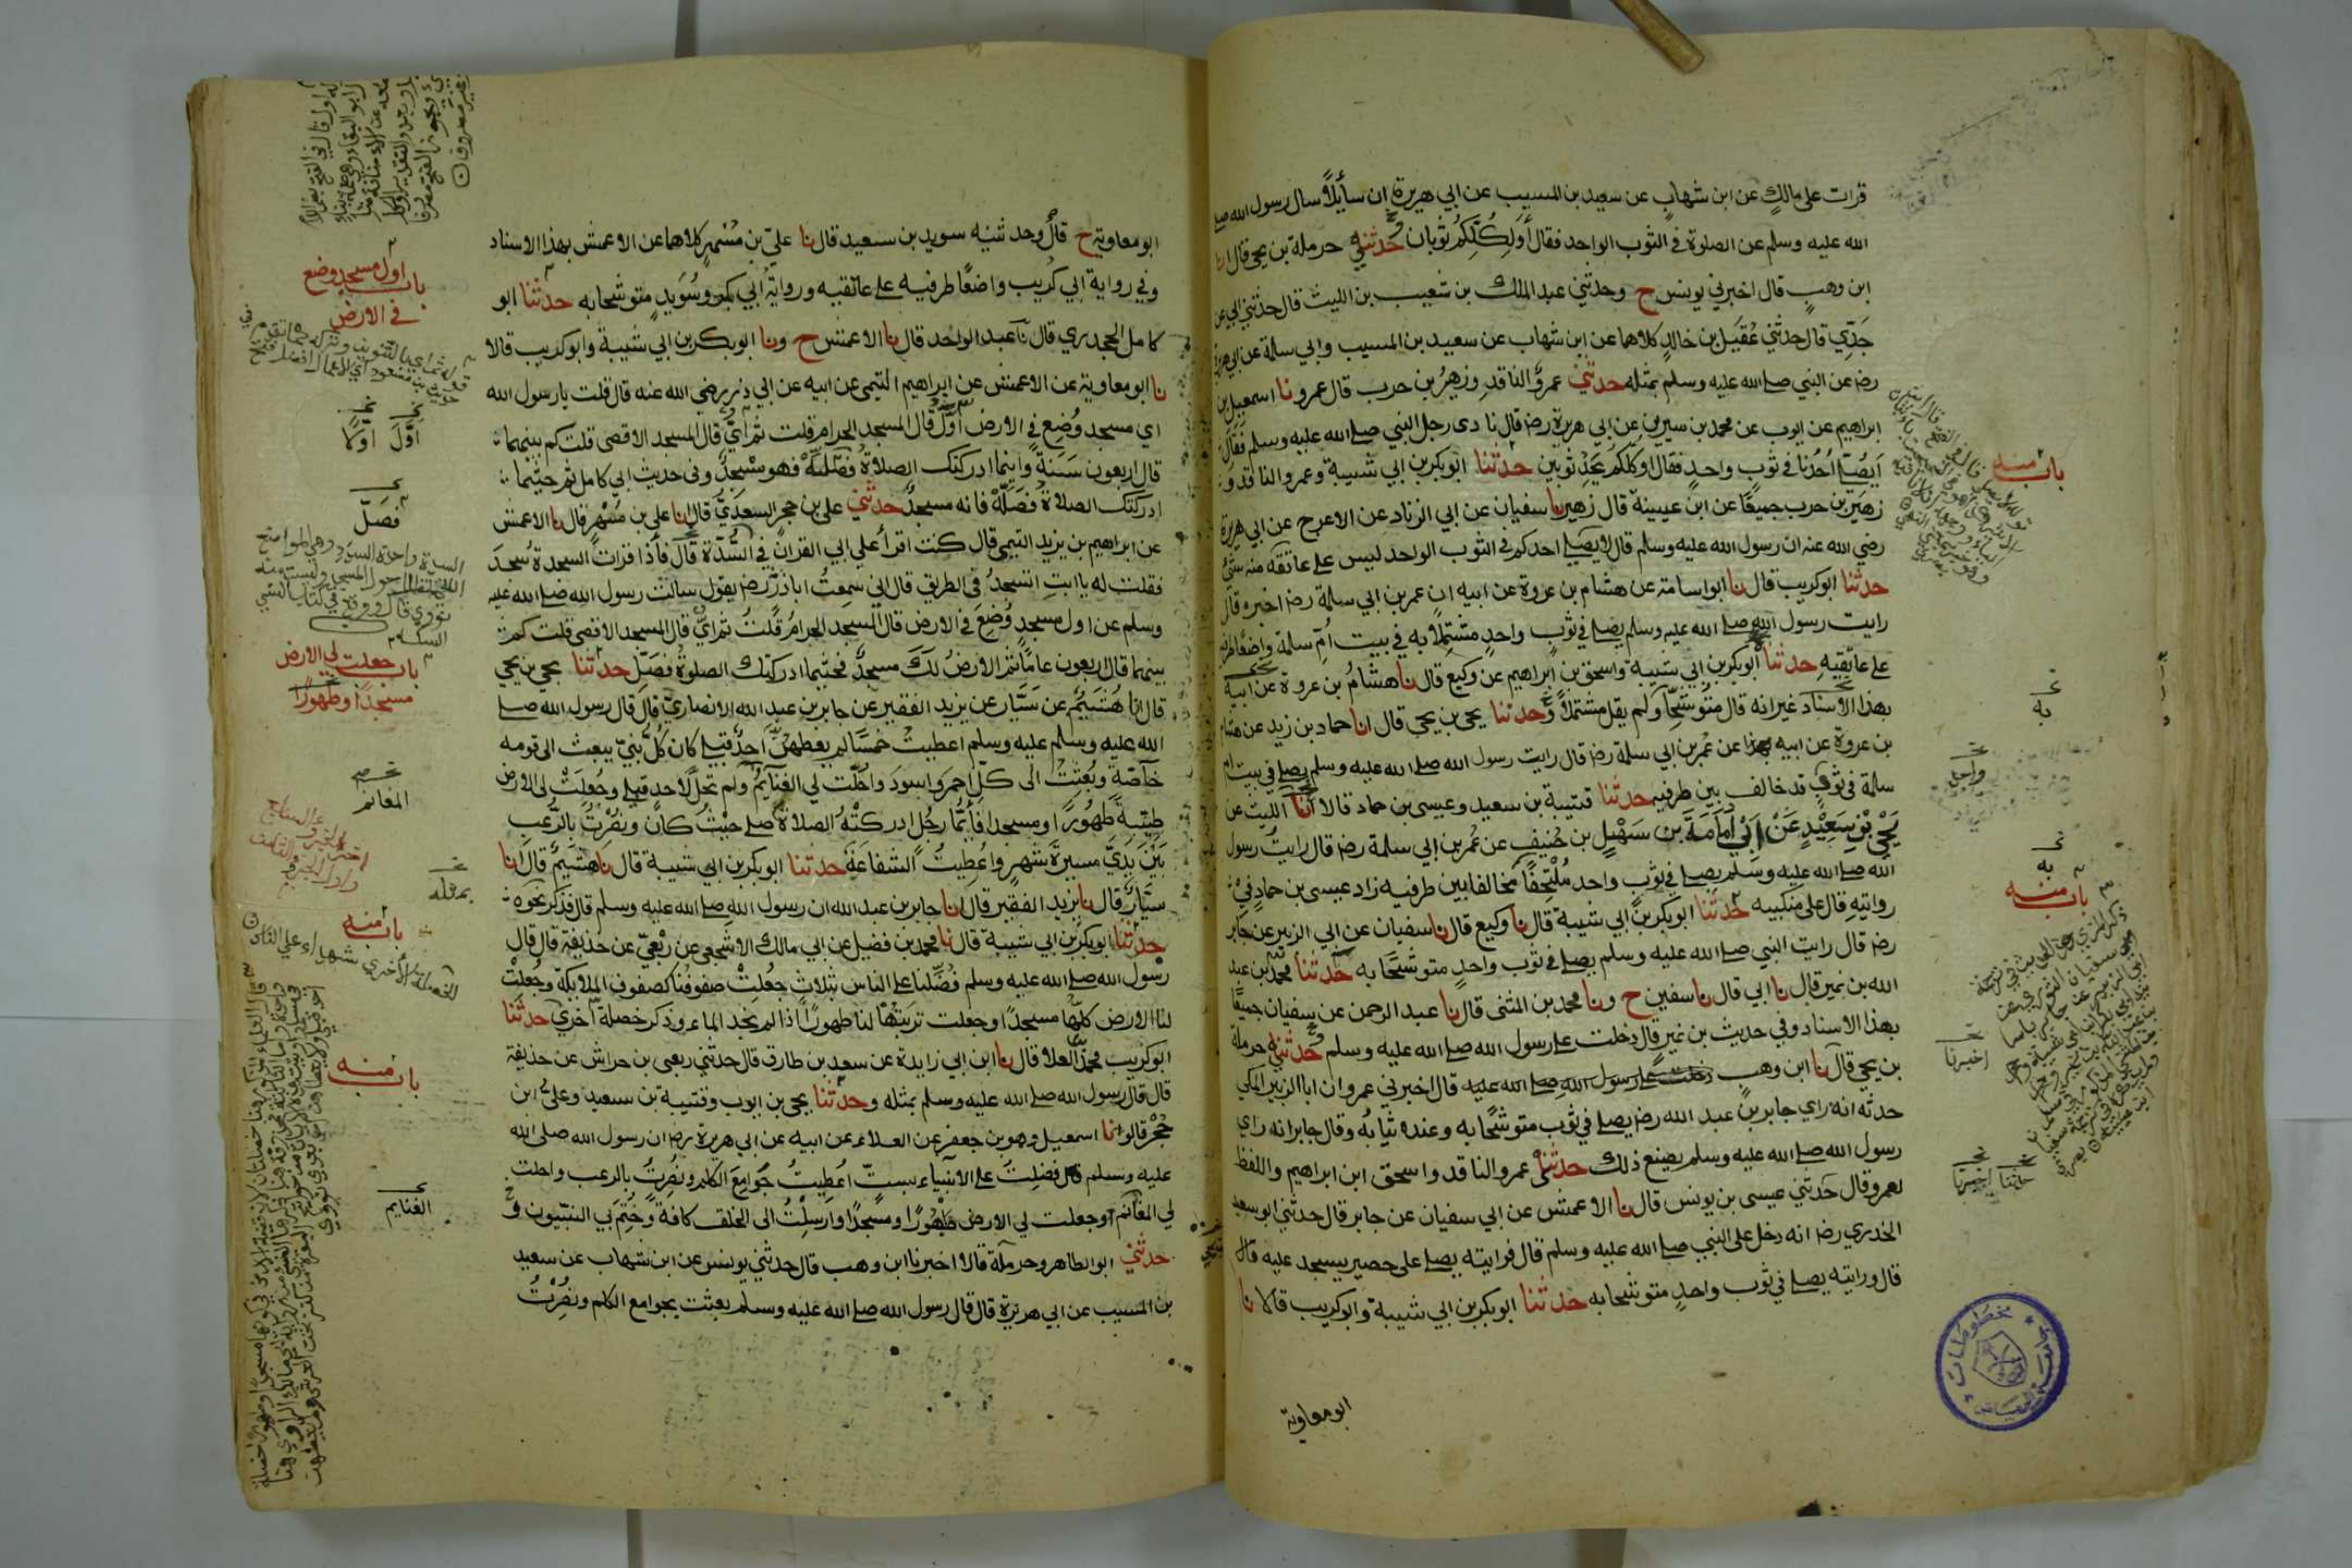 قرات على مالك عن ابن شهاب عن سعيد بن المسيب عن ابي هريرة ان سايلا سال رسول الله صلى
الله عليه وسلم عن الصلوة في الثوب الواحد فقال أولكلكم ثوبان وحدثني حرملة بن يحيى قال انا
ابن وهب قال اخبرني يونس ح وحدثني عبد الملك بن شعيب بن الليث قال حدثني ابي عن
جدي قال حدثني عقيل بن خالد كلاهما عن ابن شهاب عن سعيد بن المسيب وابي سلمة عن ابي هريرة
رضه عن النبي صلى الله عليه وسلم بمثله حدثني عمرو الناقد وزهير بن حرب قال عمرو نا اسمعيل بن
ابراهيم عن ايوب عن محمد بن سيرين عن ابي هريرة رضه قال نادى رجل النبي صلى الله عليه وسلم فقال
أيصلي أحدنا في ثوب واحد فقال اوكلكم يجد ثوبين حدثنا ابو بكر بن ابي شيبة وعمرو الناقد و
زهير بن حرب جميعا عن ابن عيينة قال زهير نا سفيان عن ابي الزناد عن الاعرج عن ابي هريرة
رضي الله عنه ان رسول الله صلى الله عليه وسلم قال لا يصلي احدكم في الثوب الواحد ليس على عاتقه منه شئ
حدثنا ابو كريب قال نا ابو اسامة عن هشام بن عروة عن ابيه ان عمر بن ابي سلمة رضه اخبره قال
رايت رسول الله صلى الله عليه وسلم يصلي في ثوب واحد مشتملا به في بيت أم سلمة واضعا طرفيه
على عاتقيه حدثنا ابو بكر بن ابي شيبة واسحق بن ابراهيم عن وكيع قال نا هشام بن عروة عن ابيه
بهذا الاسناد غير انه قال متوشحا ولم يقل مشتملا وحدثنا يحيى بن يحيى قال انا حماد بن زيد عن هشام
بن عروة عن ابيه عن عمر بن ابي سلمة رضه قال رايت رسول الله صلى الله عليه وسلم يصلي في بيت ام
سلمة في ثوب قد خالف بين طرفيه حدثنا قتيبة بن سعيد وعيسى بن حماد قالا انا الليث عن
يحيى بن سعيد عن ابي أمامة بن سهيل بن حنيف عن عمر بن ابي سلمة رضه قال رايت رسول
الله صلى الله عليه وسلم يصلي في ثوب واحد ملتحفا مخالفا بين طرفيه زاد عيسى بن حماد في
روايته قال على منكبيه حدثنا ابو بكر بن ابي شيبة قال نا وكيع قال نا سفيان عن ابي الزبير عن جابر
رضه قال رايت النبي صلى الله عليه وسلم يصلي في ثوب واحد متوشحا به حدثنا محمد بن عبد
الله بن نمير قال نا ابي قال نا سفين ح ونا محمد بن المثنى قال نا عبد الرحمن عن سفيان جميعا
بهذا الاسناد وفي حديث بن نمير قال دخلت على رسول الله صلى الله عليه وسلم وحدثني حرملة
بن يحيى قال نا ابن وهب دخلت على رسول الله صلى الله عليه قال اخبرني عمرو ان ابا الزبير المكي
حدثه انه راي جابر بن عبد الله رضه يصلي في ثوب متوشحا به وعنده ثيابه وقال جابر انه راي
رسول الله صلى الله عليه وسلم يصنع ذلك حدثني عمرو الناقد واسحق ابن ابراهيم واللفظ
لعمرو قال حدثني عيسى بن يونس قال نا الاعمش عن ابي سفيان عن جابر قال حدثني ابو سعيد
الخدري رضه انه دخل على النبي صلى الله عليه وسلم قال فرايته يصلي على حصير يسجد عليه قال
قال ورايته يصلي في ثوب واحد متوشحا به حدثنا ابو بكر بن ابي شيبة وابو كريب قالا نا
ابو معاوية
باب منه
به
واحد
به
باب منه
اخبرنا
حدثنا اخبرنا
ابو معاوية ح قال وحدثنيه سويد بن سعيد قال نا علي بن مسهر كلاهما عن الاعمش بهذا الاسناد
وفي رواية ابي كريب واضعا طرفيه على عاتقيه ورواية ابي بكر وسويد متوشحا به حدثنا ابو
كامل الجحدري قال نا عبد الواحد قال نا الاعمش ح ونا ابو بكر بن ابي شيبة وابو كريب قالا
نا ابو معاوية عن الاعمش عن ابراهيم التيمي عن ابيه عن ابي ذر رضي الله عنه قال قلت يا رسول الله
اي مسجد وضع في الارض أول قال المسجد الحرام قلت ثم اي قال المسجد الاقصى قلت كم بينهما
قال اربعون سنة واينما ادركتك الصلاة فصله فهو مسجد وفي حديث ابي كامل ثم حيثما
ادركتك الصلاة فصله فانه مسجد حدثني علي بن حجر السعدي قال انا علي بن مسهر قال نا الاعمش
عن ابراهيم بن يزيد التيمي قال كنت اقرأ على ابي القران في السدة قال فاذا قرات السجدة سجد
فقلت له يا ابت اتسجد في الطريق قال اني سمعت اباذر رضه يقول سالت رسول الله صلى الله عليه
وسلم عن اول مسجد وضع في الارض قال المسجد الحرام قلت ثم اي قال المسجد الاقصى قلت كم
بينهما قال اربعون عاما ثم الارض لك مسجد فحيثما ادركتك الصلوة فصل حدثنا يحيى بن يحيى
قال انا هشيم عن سيار عن يزيد الفقير عن جابر بن عبد الله الانصاري قال قال رسول الله صلى
الله عليه وسلم عليه وسلم اعطيت خمسا لم يعطهن احد قبلي كان كل نبي يبعث الى قومه
خاصة وبعثت الى كل احمر واسود واحلت لي الغنايم ولم تحل لاحد قبلي وجعلت لي الارض
طيبة طهورا ومسجدا فأيما رجل ادركته الصلاة صلى حيث كان ونصرت بالرعب
بين يدي مسيرة شهر واعطيت الشفاعة حدثنا ابو بكر بن ابي شيبة قال نا هشيم قال انا
سيار قال نا يزيد الفقير قال انا جابر بن عبد الله ان رسول الله صلى الله عليه وسلم قال فذكر نحوه
حدثنا ابو بكر بن ابي شيبة قال نا محمد بن فضيل عن ابي مالك الاشجعي عن ربعي عن حذيفة قال قال
رسول الله صلى الله عليه وسلم فضلنا على الناس بثلاث جعلت صفوفنا كصفوف الملايكة وجعلت
لنا الارض كلها مسجدا وجعلت تربتها لنا طهورا اذا لم نجد الماء وذكر خصلة أخرى حدثنا
ابو كريب محمد بن العلا قال نا ابن ابي زايدة عن سعد بن طارق قال حدثني ربعي بن حراش عن حذيفة
قال قال رسول الله صلى الله عليه وسلم بمثله وحدثنا يحيى بن ايوب وقتيبة بن سعيد وعلي ابن
حجر قالوا نا اسمعيل وهو بن جعفر عن العلاء عن ابيه عن ابي هريرة رضه ان رسول الله صلى الله
عليه وسلم قال فضلت على الانبياء بست أعطيت جوامع الكلم ونصرت بالرعب واحلت
لي المغانم وجعلت لي الارض طهورا ومسجدا وارسلت الى الخلق كافة وختم بي النبيون و
حدثني ابو الطاهر وحرملة قالا اخبرنا ابن وهب قال حدثني يونس عن ابن شهاب عن سعيد
بن المسيب عن ابي هريرة قال قال رسول الله صلى الله عليه وسلم بعثت بجوامع الكلم ونصرت
باب اول مسجد وضع
في الارض
أول أولا
فصل
باب جعلت لي الارض
مسجدا وطهورا
المغانم
بمثله
باب منه
باب منه
الغنايم